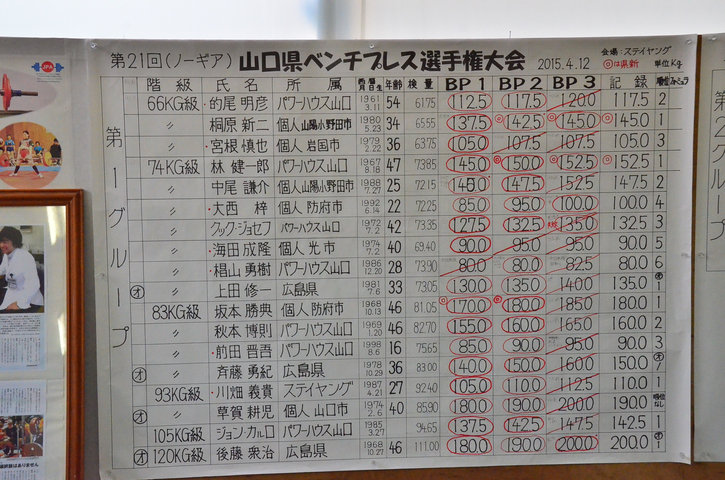 第21回(ノーギア) 山口県ベンチプレス選手権大会 2015.4.12
会場:ステイヤング
◎は県新 単位Kg
第1グループ
階級 氏名 所属 西暦生日 年齢 検量 BP1 BP2 BP3 記録 順位
66KG級 ・的尾 明彦 パワーハウス山口 1961 3.11 54 61.75 112.5 117.5 120.0 117.5 2
〃 桐原 新二 個人 山陽小野田市 1980 5.23 34 65.55 137.5 ◎142.5 ◎145.0 ◎145.0 1
〃 ・宮根 慎也 個人 岩国市 1979 2.22 36 63.75 105.0 107.5 107.5 105.0 3
74KG級 林 健一郎 パワーハウス山口 1967 8.18 47 73.85 145.0 ◎150.0 ◎152.5 ◎152.5 1
〃 中尾 謙介 個人 山陽小野田市 1988 7.27 25 72.15 147.5 152.5 147.5 2
〃 ・大西 梓 個人 防府市 1992 6.14 22 72.25 85.0 95.0 100.0 100.0 4
〃 クック・ジョセフ パワーハウス山口 1972 7.2 42 73.35 127.5 132.5 135.0 132.5 3
〃 ・海田 成隆 個人 光市 1974 7.2 40 69.40 90.0 95.0 95.0 90.0 5
〃 ・椙山 勇樹 パワーハウス山口 1986 12.20 28 73.90 80.0 80.0 82.5 80.0 6
オ 〃 上田 修一 広島県 1981 7.6 33 73.05 130.0 135.0 140.0 135.0 オ1
83KG級 坂本 勝典 個人 防府市 1968 10.13 46 81.05 ◎170.0 ◎180.0 185.0 180.0 1
〃 秋本 博則 パワーハウス山口 1969 1.20 46 82.70 155.0 160.0 165.0 160.0 2
〃 ・前田 晋吾 パワーハウス山口 1998 8.6 16 75.65 85.0 90.0 95.0 90.0 3
オ 〃 斉藤 勇紀 広島県 1978 10.29 36 83.00 140.0 150.0 160.0 150.0 オ
93KG級 ・川畑 義貴 ステイヤング 1987 4.21 27 92.40 105.0 110.0 112.5 110.0 1
オ 〃 草賀 耕児 個人 山口市 1974 2.6 40 85.90 180.0 190.0 200.0 190.0 順位なし
105KG級 ジョン・カルロ パワーハウス山口 1985 3.27 94.65 137.5 142.5 147.5 142.5 1
オ 120KG級 後藤 衆治 広島県 1968 10.27 46 111.00 180.0 190.0 200.0 200.0 オ1
JPA